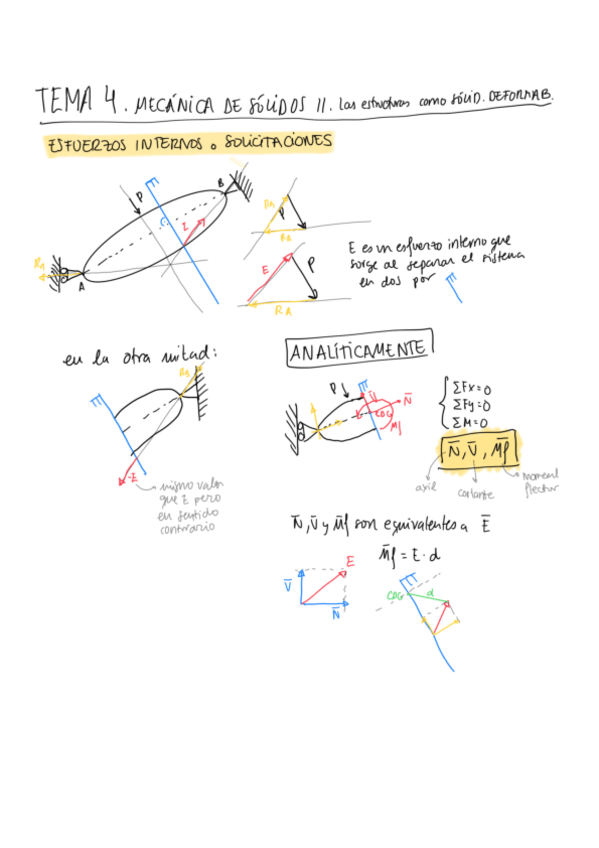 TEMA 4. MECÁNICA DE SÓLIDOS II. Las estructuras como SÓLID. DEFORMAB.
ESFUERZOS INTERNOS o SOLICITACIONES
B
P
π
RA
P
RB
C
E
RA
A
E
P
RA
E es un esfuerzo interno que
surge al separar el sistema
en dos por π
en la otra mitad:
RB
π
-E
mismo valor
que E pero
en sentido
contrario
ANALÍTICAMENTE
P
π
V̄
N̄
CDG
Mf
ΣFx=0
ΣFy=0
ΣM=0
N̄, V̄, M̄f
axil
cortante
momento
flector
N̄, V̄ y M̄f son equivalentes a Ē
M̄f = E·d
E
V̄
N̄
π
CDG
d